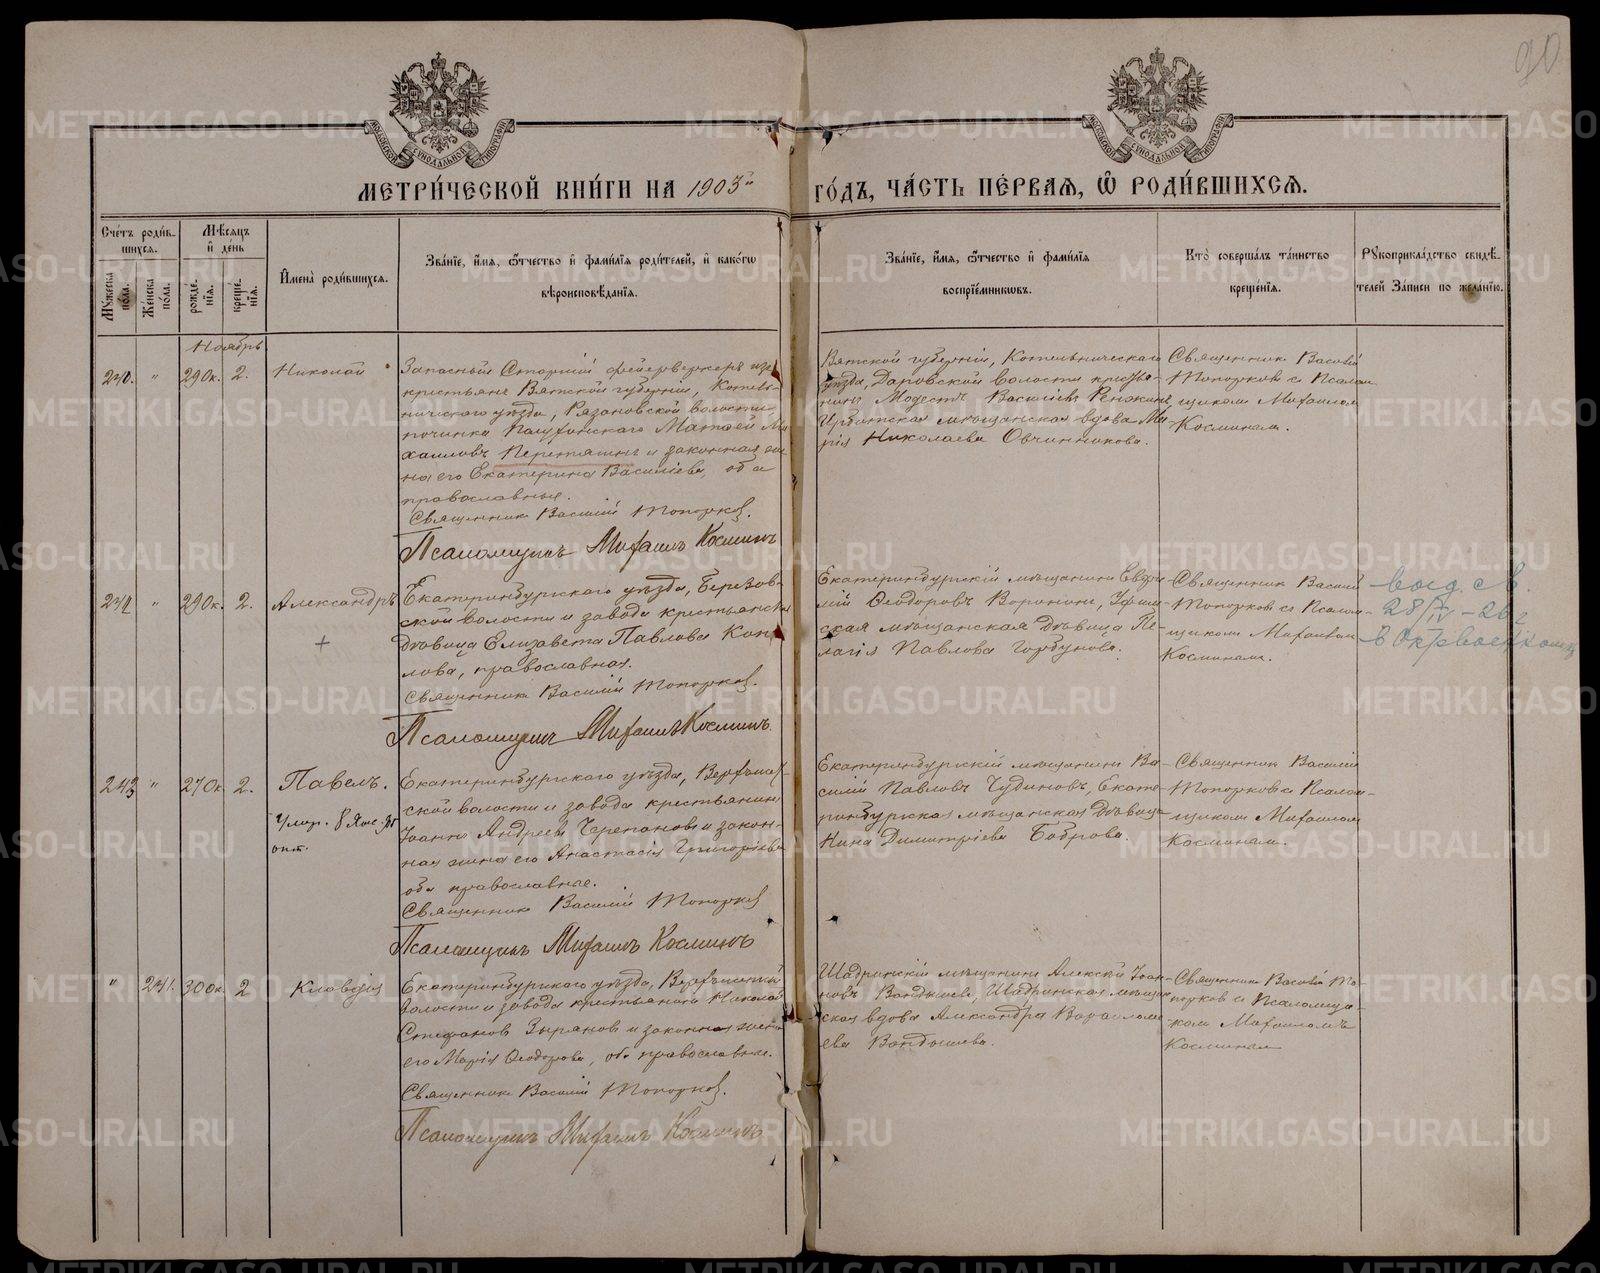 90
МОСКОВСКОЙ СѴНОДАЛЬНОЙ ТИПОГРАФІИ
МОСКОВСКОЙ СѴНОДАЛЬНОЙ ТИПОГРАФІИ
МЕТРИ́ЧЕСКОЙ КНИ́ГИ НА 1903й ГО́ДЪ, ЧА́СТЬ ПЕ́РВАѦ, Ѡ҆ РОДИ́ВШИХСѦ.
Сче́тъ роди́в-
шихсѧ.
Мꙋ́жеска по́ла.
Же́нска по́ла.
Мѣ́сѧцъ
и҆ де́нь
рожде́-
нїѧ.
креще́-
нїѧ.
И҆мена̀ роди́вшихсѧ.
Зва́нїе, и҆́мѧ, ѻ҆́тчество и҆ фами́лїѧ роди́телей, и҆ како́гѡ
вѣроисповѣ́данїѧ.
Зва́нїе, и҆́мѧ, ѻ҆́тчество и҆ фами́лїѧ
воспрїе́мникѡвъ.
Кто̀ соверша́лъ та́инство
креще́нїѧ.
Рꙋкоприкла́дство свидѣ́-
телей за́писи по жела́нїю.
Ноябрь
241. " 29 Ок. 2. Николай
Запасный Старшій фейерверкеръ изъ
крестьянъ Вятской губерніи, Котель-
ническаго уѣзда, Рязановской волости
починка Матѳей Ми-
хаиловъ Перетягинъ и законная же-
на его Екатерина Василіева, оба
православные.
Священникъ Василій Топорковъ.
Псаломщикъ Михаилъ Косминъ
Вятской губерніи, Котельническаго
уѣзда, Даровской волости крестья-
нинъ Модестъ Василіевъ
Ирбитская мѣщанская вдова Ма-
рія Николаева Овчинникова.
Священникъ Василій
Топорковъ съ Псалом-
щикомъ Михаиломъ
Косминымъ.
242 " 29 Ок. 2. Александръ
+
Екатеринбургскаго уѣзда, Березов-
ской волости и завода крестьянская
дѣвица Елизавета Павлова Коп-
лова, православная.
Священникъ Василій Топорковъ.
Псаломщикъ Михаилъ Косминъ.
Екатеринбургскій мѣщанинъ Евѳи-
мій Ѳеодоровъ Воронинъ, Уфим-
ская мѣщанская дѣвица Пе-
лагія Павлова Горбунова.
Священникъ Василій
Топорковъ съ Псалом-
щикомъ Михаиломъ
Косминымъ.
выд. св.
28/IV-26 г
в Окрвоенкомат
243 " 27 Ок. 2. Павелъ.
Умер. 8
Екатеринбургскаго уѣзда, Верхъисет-
ской волости и завода крестьянинъ
Іоаннъ Андреевъ Черепановъ и закон-
ная жена его Анастасія Григоріева
оба православные.
Священникъ Василій Топорковъ
Псаломщикъ Михаилъ Косминъ
Екатеринбургскій мѣщанинъ Ва-
силій Павловъ Чудиновъ, Екате-
ринбургская мѣщанская дѣвица
Нина Димитріева Боброва.
Священникъ Василій
Топорковъ съ Псалом-
щикомъ Михаиломъ
Косминымъ.
" 241. 30 Ок. 2 Клавдія
Екатеринбургскаго уѣзда, Верхъисетской
волости и завода крестьянинъ Николай
Стефановъ Зыряновъ и законная жена
его Марія Ѳеодорова, оба православные.
Священникъ Василій Топорковъ.
Псаломщикъ Михаилъ Косминъ
Шадринскій мѣщанинъ Алексѣй Іоан-
новъ Вандышевъ, Шадринская мѣщан-
ская вдова Александра Варѳоломе-
ева Вандышева.
Священникъ Василій То-
порковъ съ Псаломщи-
комъ Михаиломъ
Косминымъ
METRIKI.GASO-URAL.RU